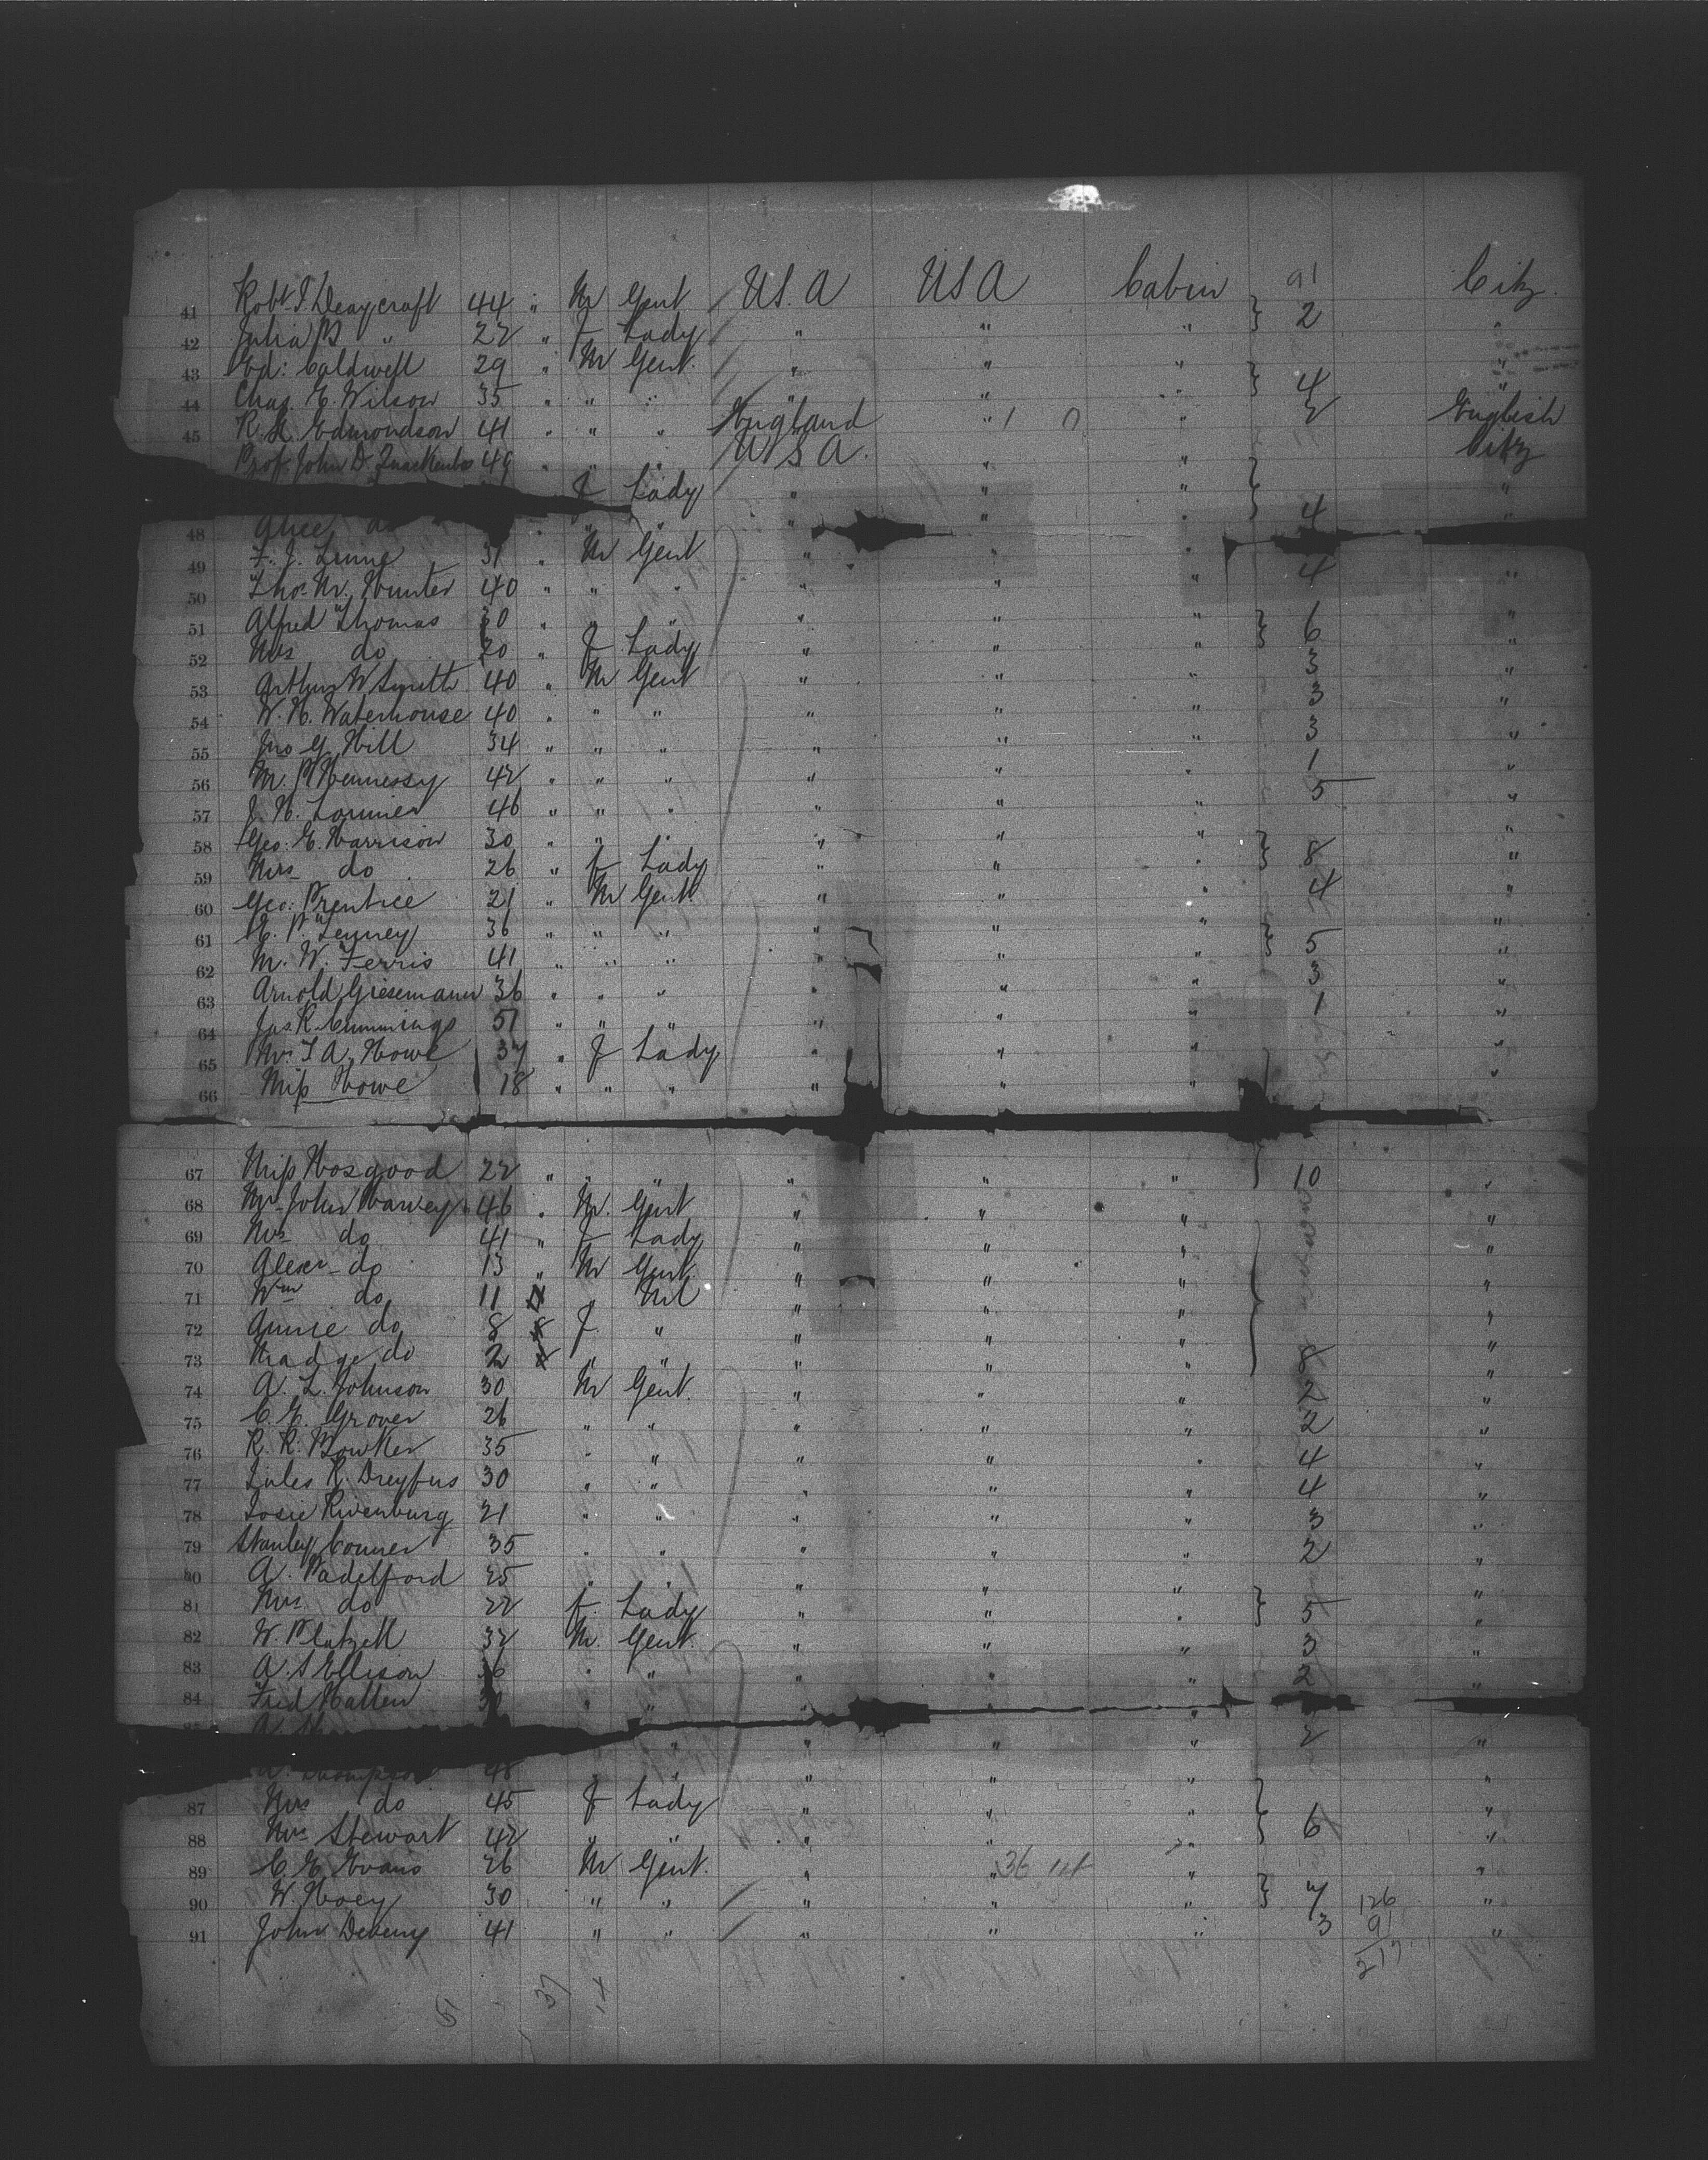 91
41 Robt S. Deaycraft 44 " M Gent U.S.A USA Cabin 2 Citz.
42 Julia B " 22 " F Lady " " " "
43 Ed: Caldwell 29 " M Gent. " " " "
44 Chas. E. Wilson 35 " " " " " " 4 "
45 R. L. Edmondson 41 " " " England " 1 0 " 2 English
Prof. John D. Quackenbos 49 " " " U S A. " Citz
F Lady " " " "
48 Alice do " " " " " 4 "
49 F. J. Linne 31 " M Gent " "
50 Thos. M. Hunter 40 " " " " " " 4 "
51 Alfred Thomas 30 " " " " " " 6 "
52 Mrs do 20 " F Lady " " " "
53 Arthur W Smith 40 " M Gent " " " 3 "
54 W. H. Waterhouse 40 " " " " " " 3 "
55 Jno G. Hill 34 " " " " " " 3 "
56 M. P Hennessy 42 " " " " " " 1 "
57 J. H. Lorimer 46 " " " " " " 5 "
58 Geo: E. Harrison 30 " " " " " " 8 "
59 Mrs do 26 " F Lady " " " "
60 Geo: Prentice 21 " M Gent " " " 4 "
61 E. P. Tenney 36 " " " " " " 5 "
62 M. W. Ferris 41 " " " " " " "
63 Arnold Giesemann 36 " " " " " " 3 "
64 Jas R. Cummings 51 " " " " " " 1 "
65 Mrs T A. Howe 37 " F Lady " " " "
66 Miss Howe 18 " " " " " " "
67 Miss Hosgood 22 " " " " " " 10 "
68 Mr John Harvey 46 " M. Gent " " " "
69 Mrs do 41 " F Lady " " " "
70 Alexr do 13 " M Gent. " " " "
71 Wm do 11 " Nil " " " "
72 Annie do 8 F. " " " " "
73 Madge do 2 " " " " " 8 "
74 A. L. Johnson 30 M Gent. " " " 2 "
75 C. E. Grover 26 " " " " " 2 "
76 R. R. Bowker 35 " " " " " 4 "
77 Jules R. Dreyfus 30 " " " " " 4 "
78 Josie Rivenburg 21 " " " " " 3 "
79 Stanley Conner 35 " " " " " 2 "
80 A. Padelford 25 " " " " " "
81 Mrs do 22 F. Lady " " " 5 "
82 W. Platzell 32 M. Gent. " " " 3 "
83 A. S Ellison 36 " " " " " 2 "
84 Fred Hatten 30 " " " " " "
" " " " 2 "
A. Thompson 48 " " " " "
87 Mrs do 45 F Lady " " " "
88 Mrs Stewart 42 " " " " " 6 "
89 C. E. Evans 26 M Gent. " " 36 " "
90 W. Hoey 30 " " " " " 7 126 "
91 John Deveny 41 " " " " " 3 91 "
217